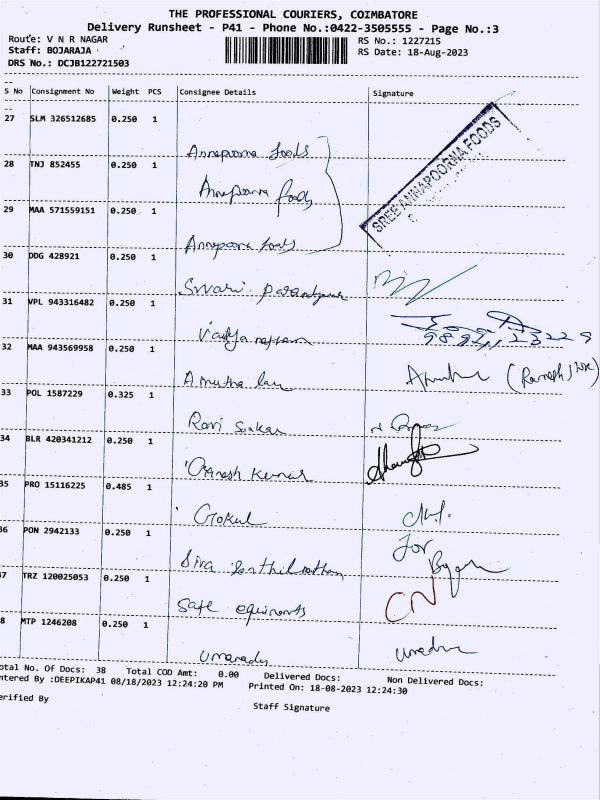 THE PROFESSIONAL COURIERS, COIMBATORE
Delivery Runsheet - P41 - Phone No.:0422-3505555 - Page No.:3
Route: V N R NAGAR
RS No.: 1227215
Staff: BOJARAJA
RS Date: 18-Aug-2023
DRS No.: DCJB122721503
S No Consignment No Weight PCS Consignee Details Signature
27 SLM 326512685 0.250 1 Annapoorna foods
SREE ANNAPOORNA FOODS
28 TNJ 852455 0.250 1 Annapoorna foods
29 MAA 571559151 0.250 1 Annapoorna foods
30 DDG 428921 0.250 1 Swari
31 VPL 943316482 0.250 1
32 MAA 943569958 0.250 1 Amutha
33 POL 1587229 0.325 1 Ravi
34 BLR 420341212 0.250 1 Ganesh Kumar
35 PRO 15116225 0.485 1 Gokul
36 PON 2942133 0.250 1 Siva for
37 TRZ 120025053 0.250 1 Safe CN
8 MTP 1246208 0.250 1
otal No. Of Docs: 38 Total COD Amt: 0.00 Delivered Docs: Non Delivered Docs:
ntered By :DEEPIKAP41 08/18/2023 12:24:20 PM Printed On: 18-08-2023 12:24:30
erified By Staff Signature